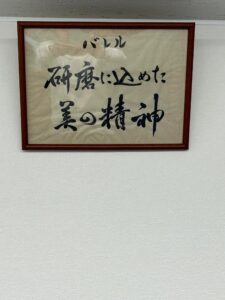 バレル
研磨に込めた
美の精神